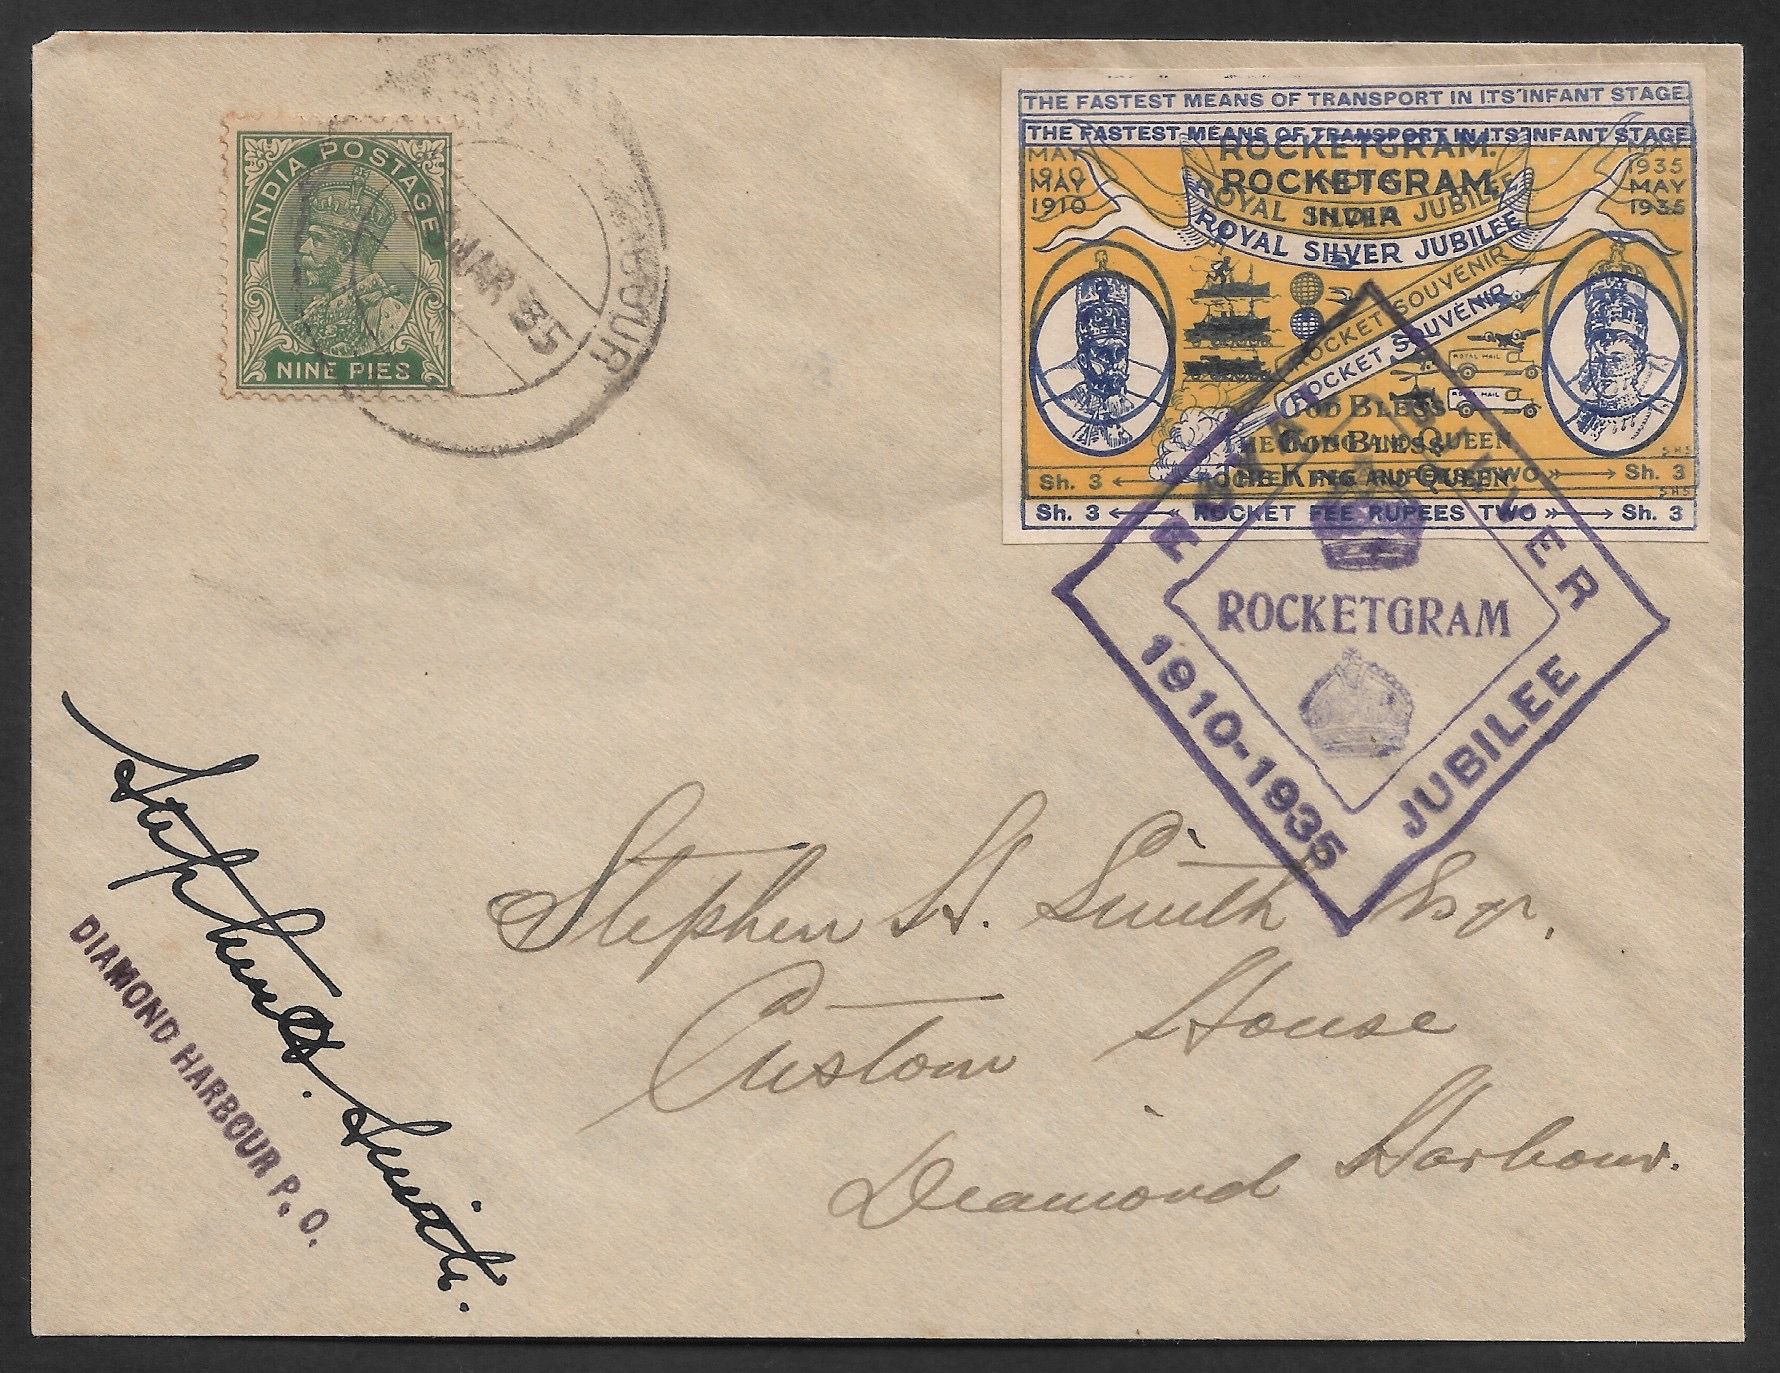 INDIA POSTAGE
NINE PIES
MAR 35
THE FASTEST MEANS OF TRANSPORT IN ITS INFANT STAGE
THE FASTEST MEANS OF TRANSPORT IN ITS INFANT STAGE
MAY 1910
ROCKETGRAM.
MAY 1935
MAY 1910
ROCKETGRAM.
MAY 1935
INDIA
ROYAL SILVER JUBILEE
INDIA
ROYAL SILVER JUBILEE
ROCKET SOUVENIR
ROCKET SOUVENIR
ROYAL MAIL
ROYAL MAIL
GOD BLESS
THE KING AND QUEEN
GOD BLESS
THE KING AND QUEEN
S.H.S
Sh. 3 ROCKET FEE RUPEES TWO Sh. 3
S.H.S
Sh. 3 ROCKET FEE RUPEES TWO Sh. 3
SILVER
JUBILEE
1910-1935
ROCKETGRAM
Stephen H. Smith Esqr.
Custom House
Diamond Harbour.
Stephen H. Smith.
DIAMOND HARBOUR P.O.